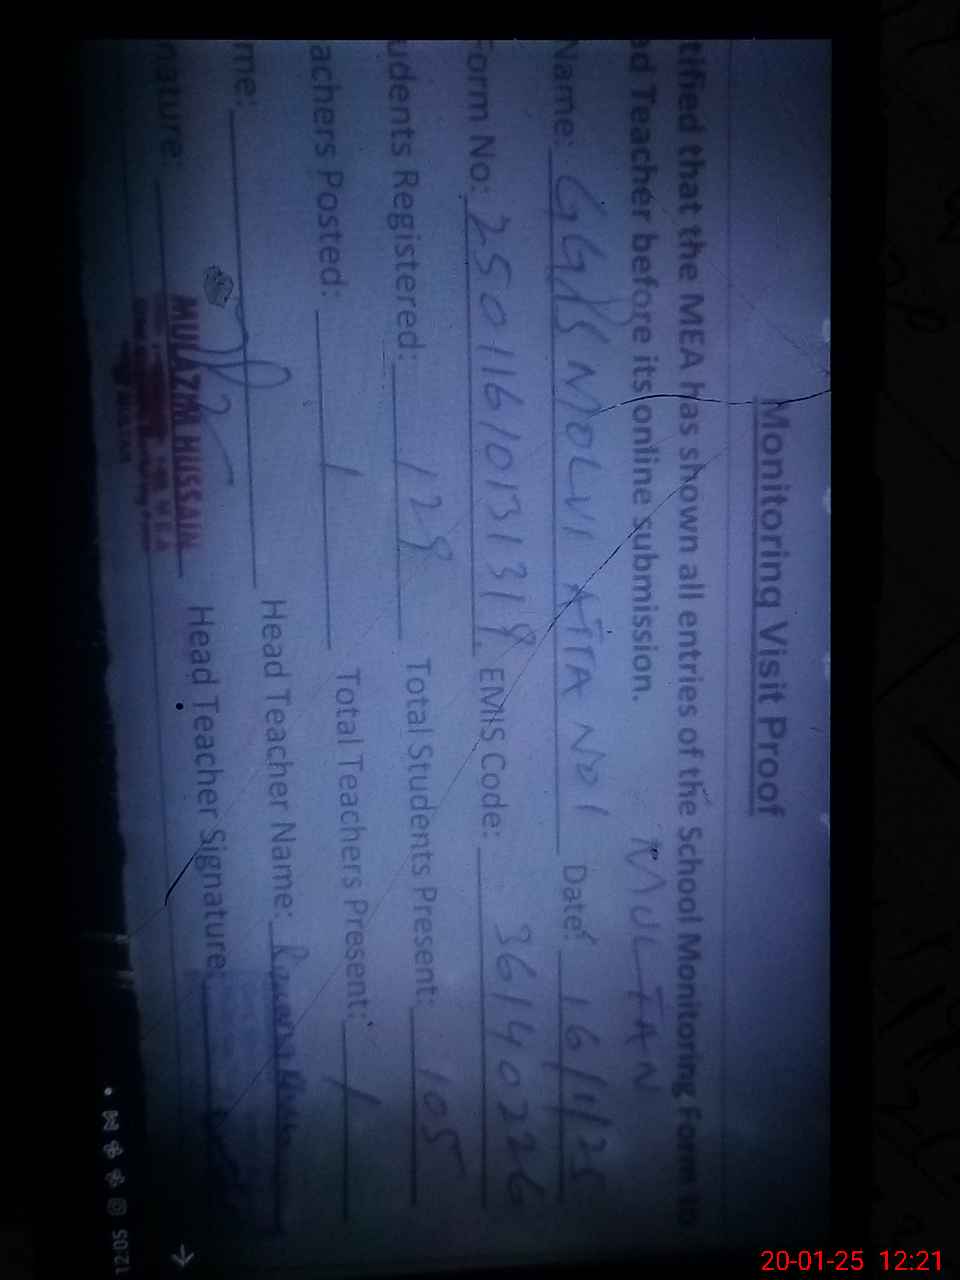 Monitoring Visit Proof
tified that the MEA has shown all entries of the School Monitoring Form to
ad Teacher before its online submission. MULTAN
Name: GGPS MOLVI ATTA NO1 Date: 16/1/25
Form No: 2501161013131 EMIS Code: 36140226
udents Registered: 129 Total Students Present: 105
achers Posted: 1 Total Teachers Present: 1
me: Head Teacher Name:
nature: MULAZIM HUSSAIN Head Teacher Signature:
12:05
20-01-25 12:21